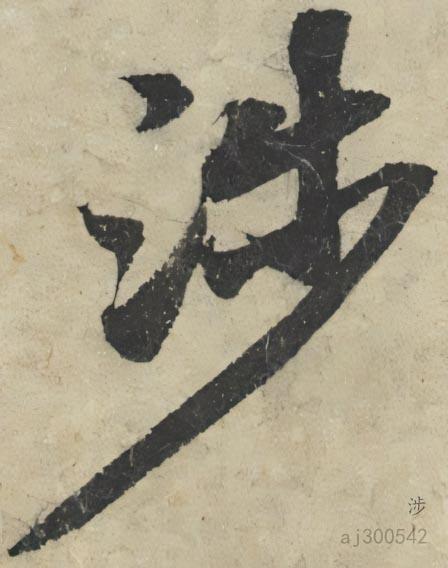 涉
涉
aj300542